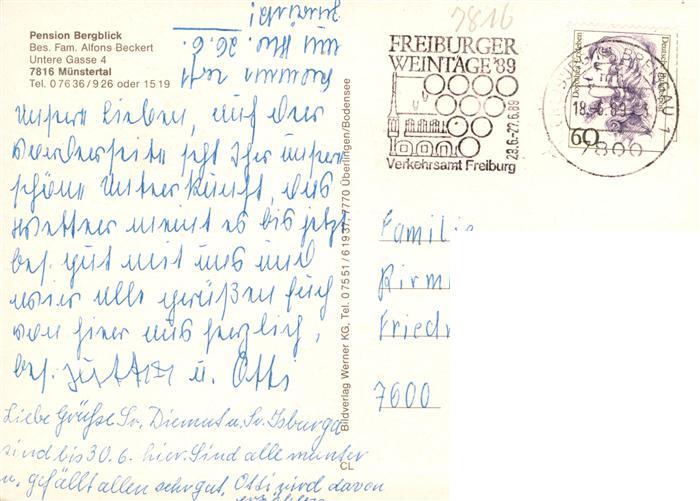 Pension Bergblick
Bes. Fam. Alfons Beckert
Untere Gasse 4
7816 Münstertal
Tel. 07636/926 oder 1519
kommen erst
am Abr. 26.6.
zurück!
Unsere Lieben, auf der
Vorderseite seht Ihr unsere
schöne Unterkunft, das
Wetter meint es bis jetzt
bes. gut mit uns und
wir alle grüßen Euch
von hier aus herzlich,
bes. u. Otti
Liebe Grüße Sr. Diemut u. Sr. Isburga
sind bis 30.6. hier. Sind alle munter
u. gefällt allen sehr gut. Otti wird davon
erzählen
Bildverlag Werner KG, Tel. 07551/61937, 7770 Überlingen/Bodensee
CL
7816
FREIBURGER
WEINTAGE '89
23.6.-27.6.89
Verkehrsamt Freiburg
FREIBURG BREISGAU 1
18.-6.89
7800
Deutsche Bundespost
60
Familie
Firm
Friedr
7600